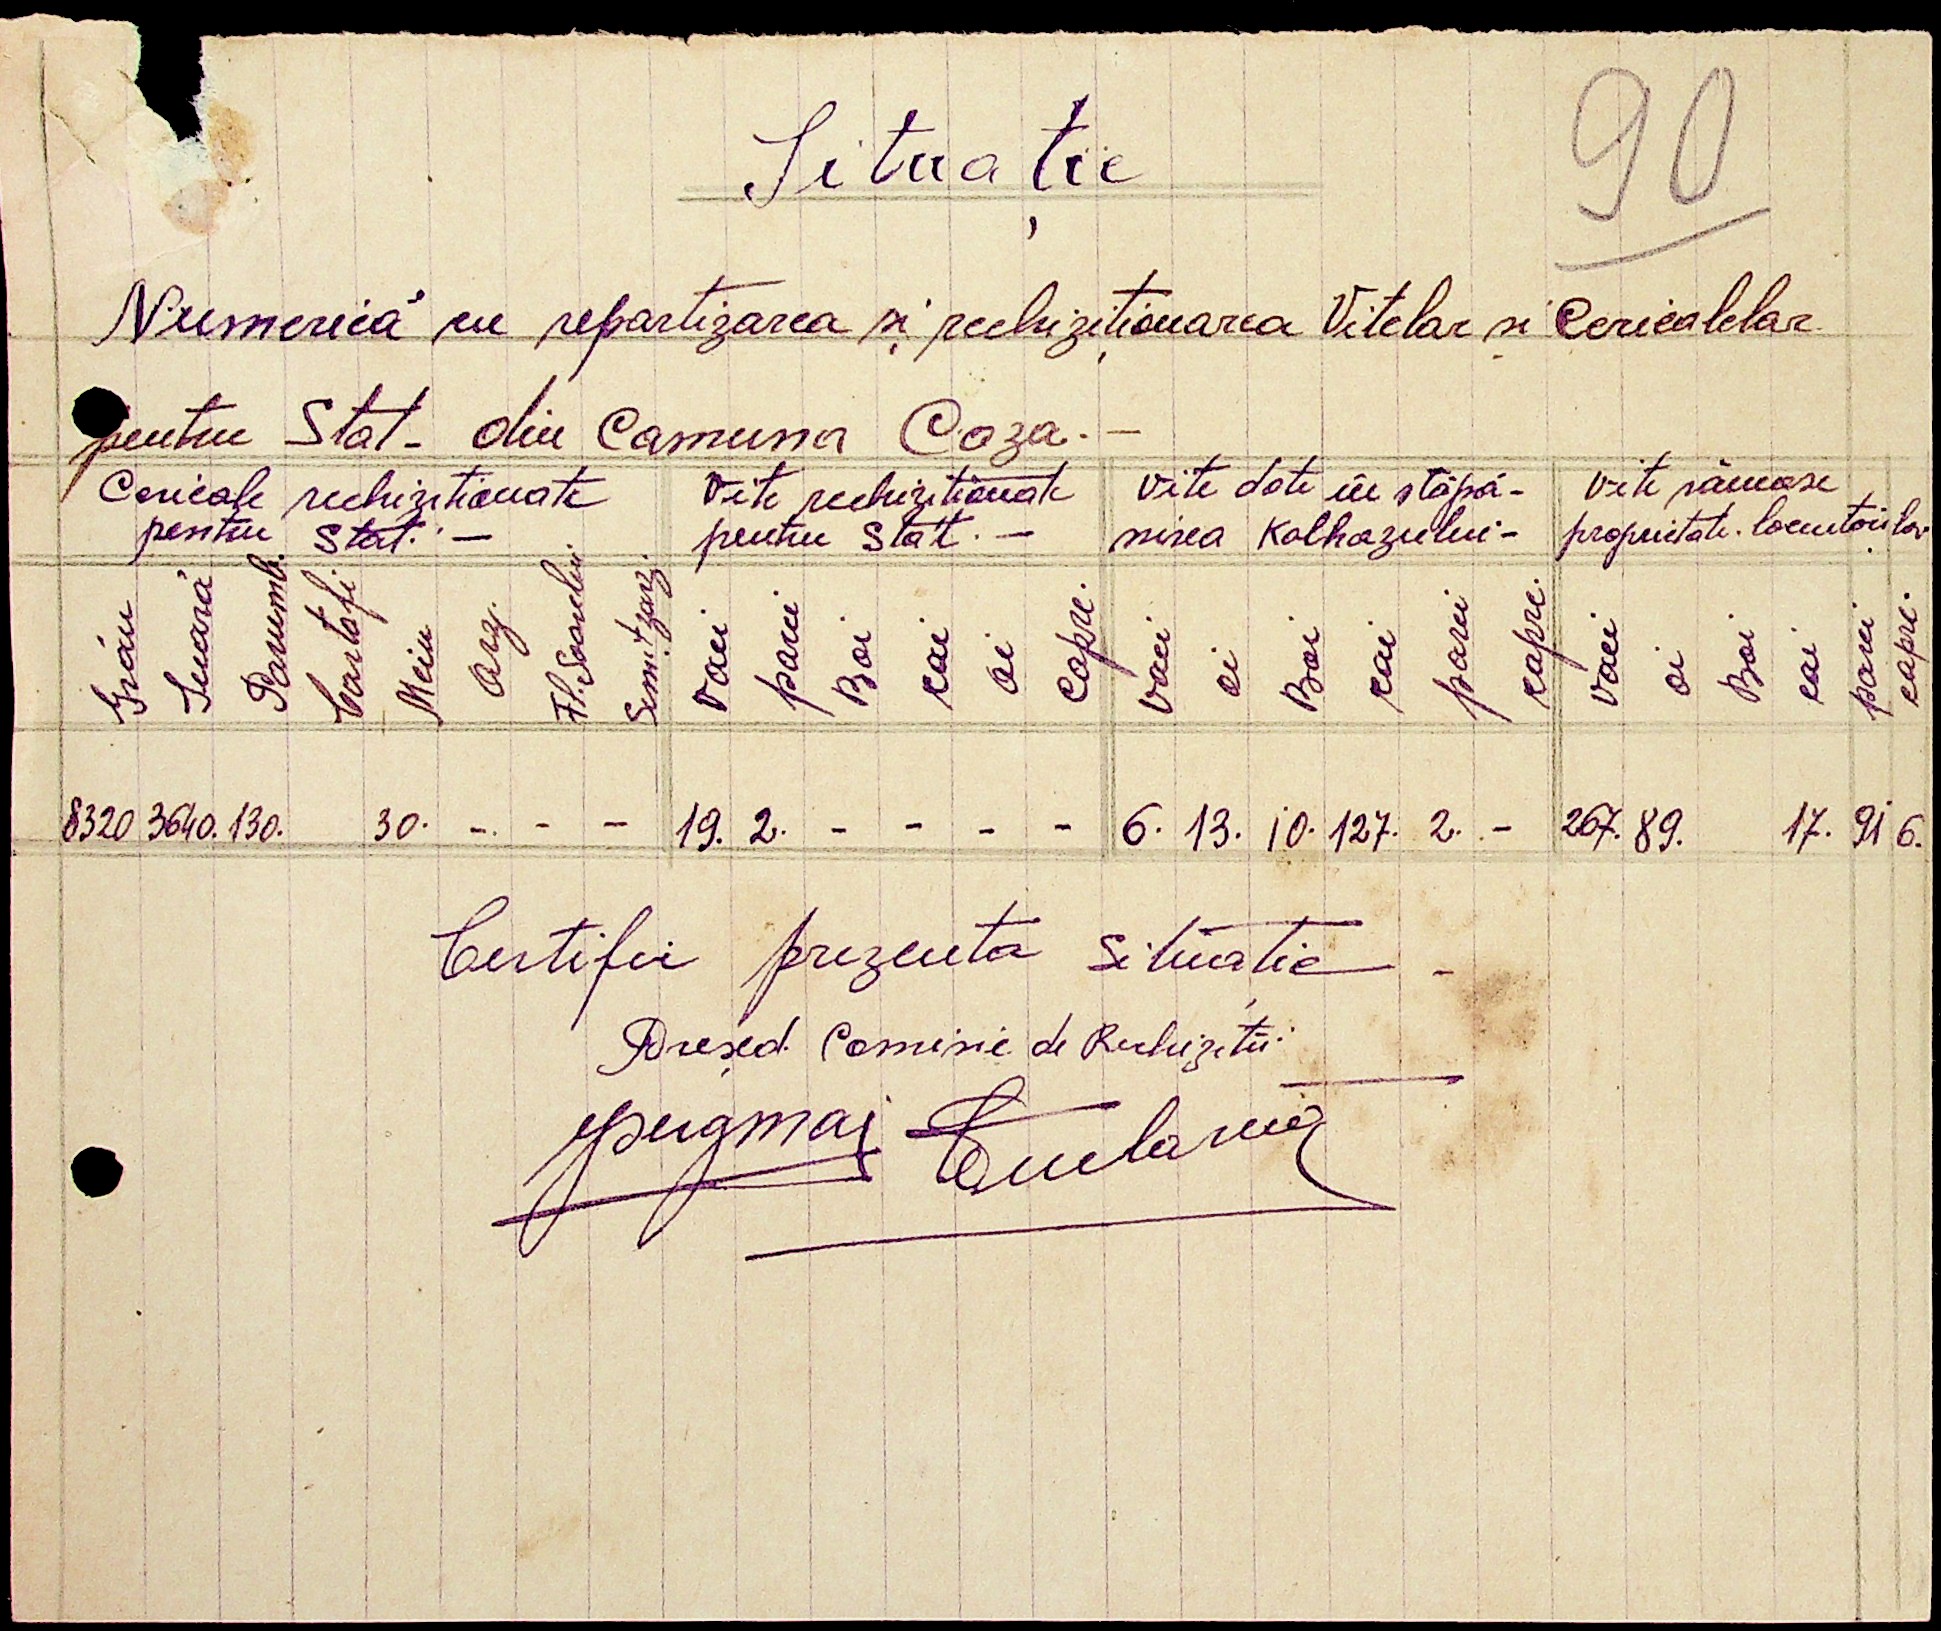 90
Situație
Numerică cu repartizarea și rechiziționarea Vitelor și Cerealelor
pentru Stat - din Comuna Coza. -
Cereale rechizitionate
pentru Stat. -
Vite rechizitionate
pentru Stat. -
Vite date în stăpâ-
nirea Kolhozului -
Vite rămase
proprietate locuitorilor
Grâu Secară Porumb. Cartofi Meiu Orz. Fl. Soarelui Sem. Vaci porci Boi cai oi Capre. Vaci oi Boi cai porci capre. Vaci oi Boi cai porci capre.
8320 3640. 130. 30. - - - 19. 2. - - - - 6. 13. 10. 127. 2. - 267. 89. 17. 91 6.
Certific prezenta situatie -
Președ. Comisie de Rechiziții